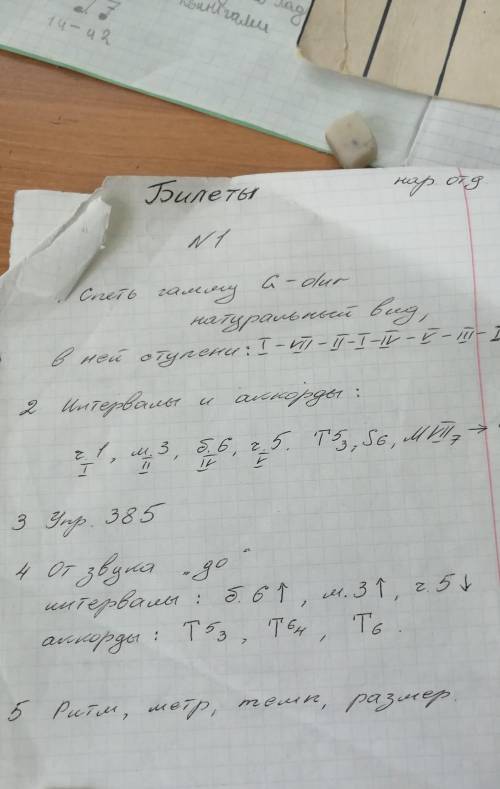 14-42
книгами
Билеты
нар. отд
N 1
. Спеть гамму G-dur
натуральный вид,
в ней ступени: I-VII-II-I-IV-V-III-I
2 Интервалы и аккорды:
ч.1, м.3, б.6, ч.5. T53, S6, МVII7 →
I II IV V
3 Упр. 385
4 От звука „до“
интервалы: б.6↑, м.3↑, ч.5↓
аккорды: T53, T64, T6.
5 Ритм, метр, темп, размер.